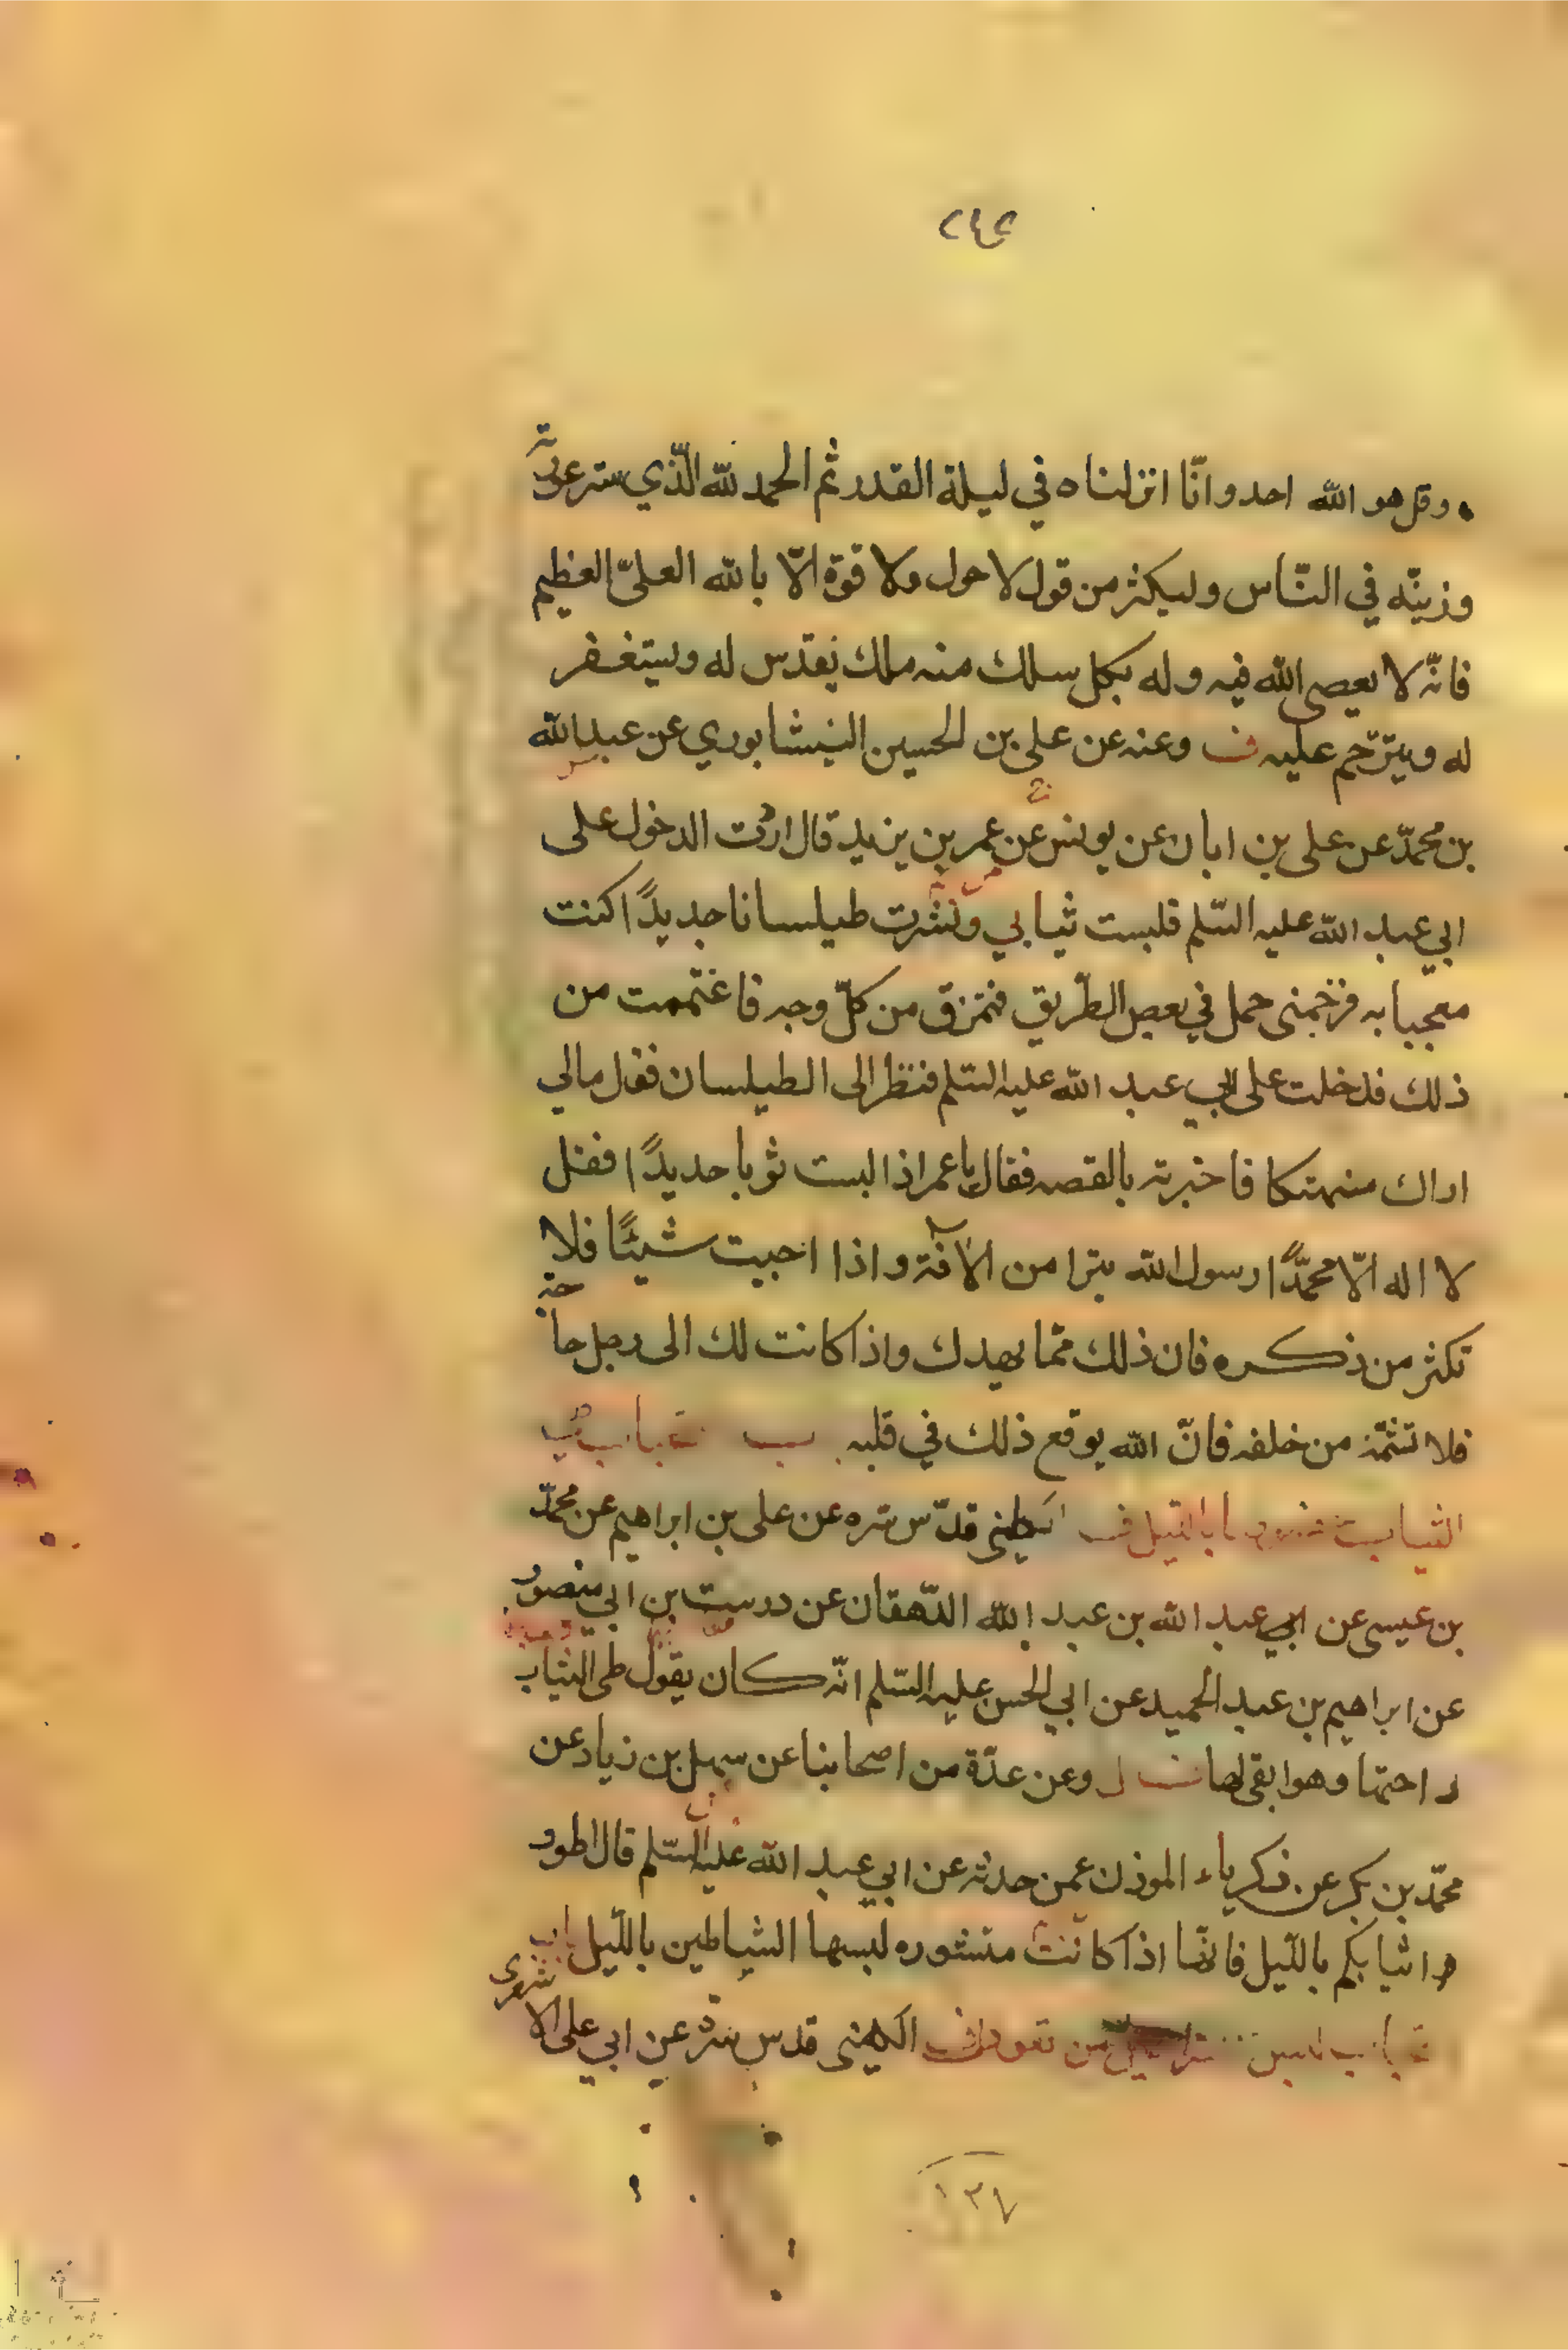 ٢٤٤
وقل هو الله احد وانّا انزلناه في ليلة القدر ثم الحمد لله الّذي ستر عورته
وزينّه في النّاس وليكثر من قول لا حول ولا قوة الّا بالله العليّ العظيم
فانّه لا يعصى الله فيه وله بكل سلك منه ملك يقدس له ويستغفر
له ويترّحم عليه ف وعنه عن على بن الحسين النيشابوري عن عبد الله
بن محمدّ عن على بن ابان عن يونس عن عمر بن يزيد قال اردت الدخول على
ابي عبد الله عليه السّلم فلبست ثيابي ونشرت طيلسانا جديدًا كنت
معجبا به فزحمنى جمل في بعض الطّريق فتمزق من كلّ وجه فاغتممت من
ذلك فدخلت على ابي عبد الله عليه السّلم فنظر الى الطيلسان فقال مالي
اراك منهتكا فاخبرته بالقصه فقال يا عمر اذا لبست ثوبا جديدًا فقل
لا اله الّا محمدًّا رسول الله يبرا من الآفة واذا احببت شيئًا فلا
تكثر من ذكره فان ذلك ممّا يهدك واذا كانت لك الى رجل حاجة
فلا تشتمّه من خلفه فانّ الله يوقع ذلك في قلبه
الثياب بالليل ف الكليني قدّس سّره عن على بن ابراهيم عن محمدّ
بن عيسى عن ابي عبد الله بن عبد الله الدّهقان عن درست بن ابي منصور
عن ابراهيم بن عبد الحميد عن ابي الحسن عليه السّلم انّه كان يقول طى الثياب
راحتها وهو ابقى لها وعن عدّة من اصحابنا عن سهل بن زياد عن
محمّد بن بكر عن زكرياء الموذن عمن حدثه عن ابي عبد الله عليه السّلم قال اطوو
ا ثيابكم بالليّل فانهّا اذا كانت منشوره لبسها الشياطين بالليّل باب
الكليني قدس سّره عن ابي على الاشعرى
١٣٧